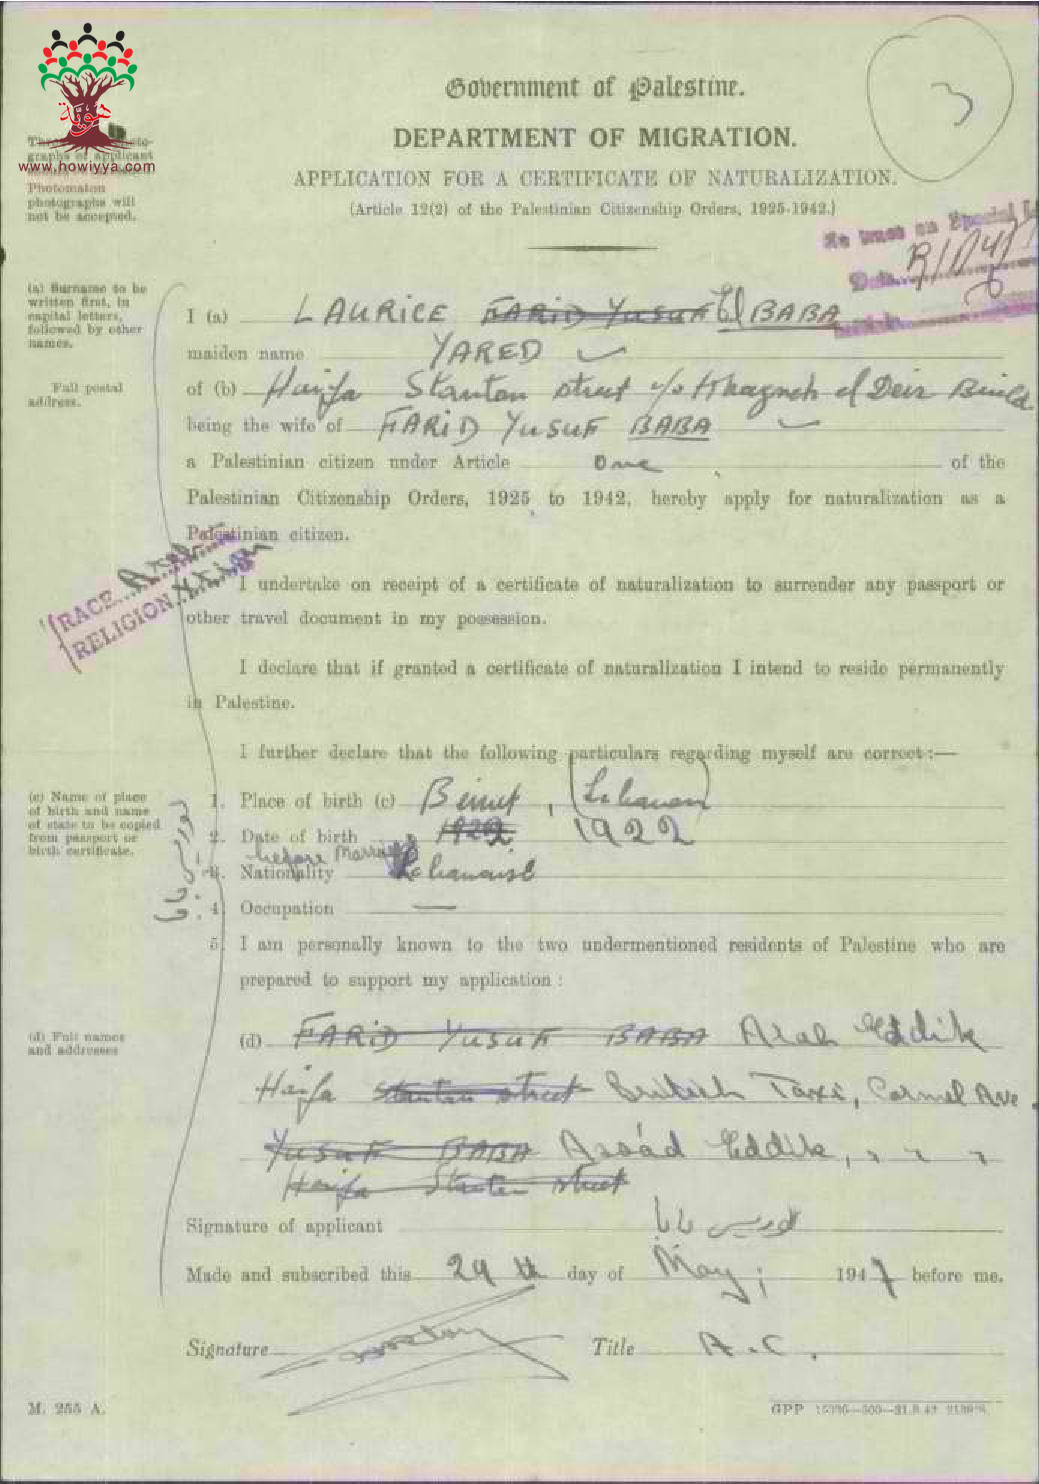 3
هوية
www.howiyya.com
Government of Palestine.
DEPARTMENT OF MIGRATION.
APPLICATION FOR A CERTIFICATE OF NATURALIZATION.
(Article 12(2) of the Palestinian Citizenship Orders, 1925-1942.)
graphs of applicant
Photomaton
photographs will
not be accepted.
Date
(a) Surname to be
written first, in
capital letters,
followed by other
names.
I (a) LAURICE FARID YUSUF El BABA
maiden name YARED
Full postal
address.
of (b) Haifa Stanton street c/o Khayneh el Deir Build.
being the wife of FARID YUSUF BABA
a Palestinian citizen under Article One of the
Palestinian Citizenship Orders, 1925 to 1942, hereby apply for naturalization as a
Palestinian citizen.
RACE Arab
RELIGION
I undertake on receipt of a certificate of naturalization to surrender any passport or
other travel document in my possession.
I declare that if granted a certificate of naturalization I intend to reside permanently
in Palestine.
I further declare that the following particulars regarding myself are correct:—
(c) Name of place
of birth and name
of state to be copied
from passport or
birth certificate.
1. Place of birth (c) Beirut, (Lebanon)
2. Date of birth 1922 1922
before Marriage
3. Nationality Lebanaise
لوريس بابا
4. Occupation —
5. I am personally known to the two undermentioned residents of Palestine who are
prepared to support my application :
(d) Full names
and addresses
(d) FARID YUSUF BABA Eddik
Haifa Stanton street British Taxi, Carmel Ave.
YUSUF BABA Assád Eddik, " " "
Haifa Stanton street
Signature of applicant لوريس بابا
Made and subscribed this 29th day of May; 1947 before me.
Signature
Title A.C.
M. 255 A.
GPP